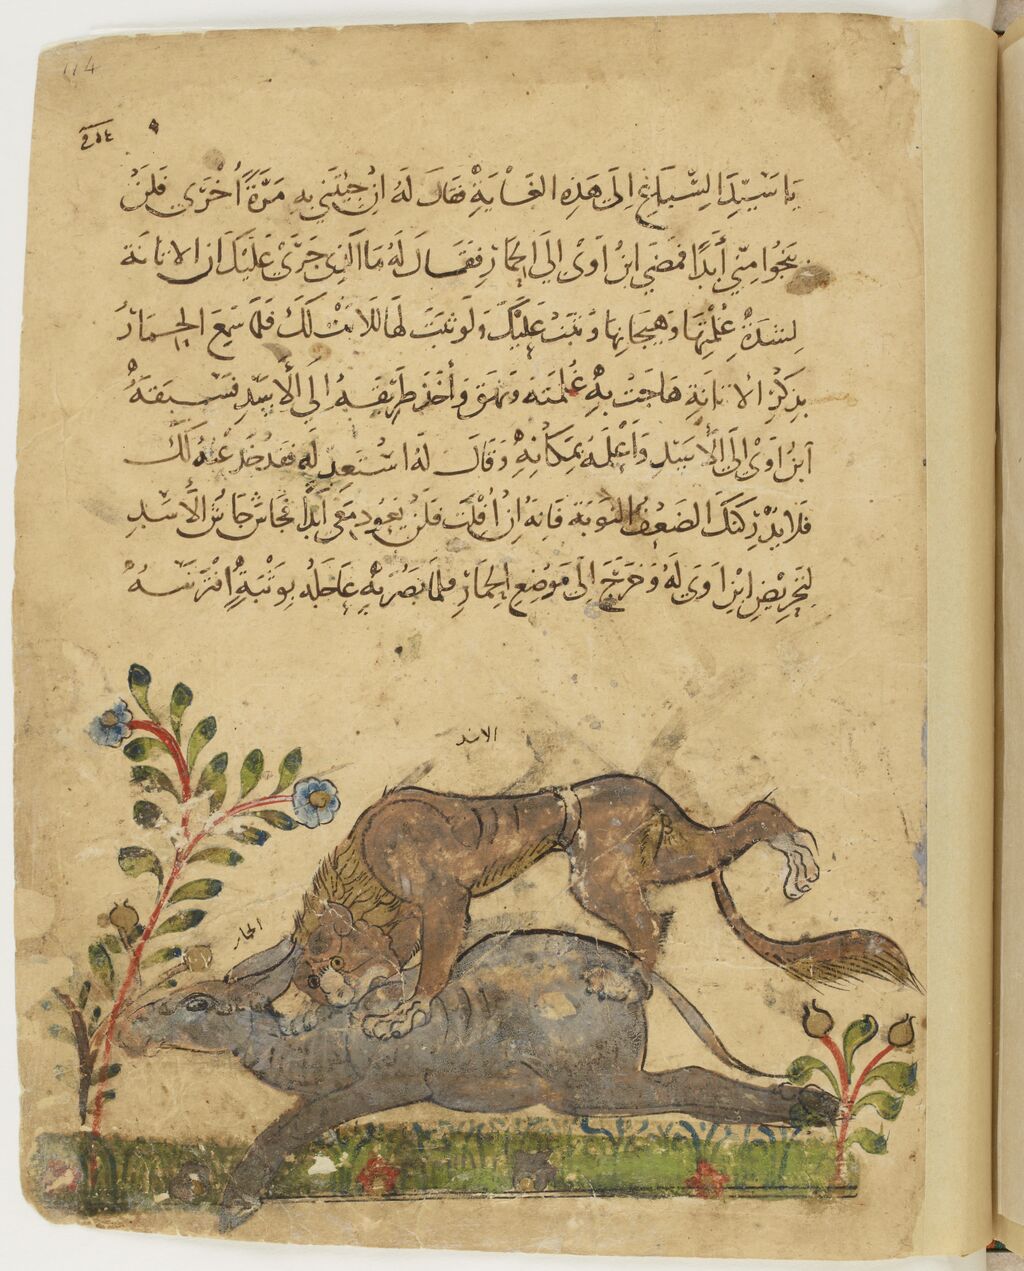 114
يَا سَيِّدَ السِّبَاعِ إِلَى هَذِهِ الغَايَةِ فَقَالَ لَهُ إِنْ جِئْتَنِي بِهِ مَرَّةً أُخْرَى فَلَنْ
يَنْجُوا مِنِّي أَبَدًا فَمَضَى ابْنُ اوَى الَى الحِمَارِ فَقَالَ لَهُ مَا الَّذِي جَرَى عَلَيْكَ ان الاتانة
لِشِدَّةِ غُلْمَتِهَا وَهَيَجَانِهَا وَثَبَتْ عَلَيْكَ وَلَوْ ثَبَتَّ لَهَا لَلَانَتْ لَكَ فَلَمَّا سَمِعَ الحِمَارُ
بِذِكْرِ الاتانَةِ هَاجَتْ بِهِ غُلْمَتُهُ وَنَهَقَ وَأَخَذَ طَرِيقَهُ إِلَى الأَسَدِ فَسَبَقَهُ
ابْنُ اوَى إِلَى الأَسَدِ وَأَعْلَمَهُ بِمَكَانِهِ وَقَالَ لَهُ اسْتَعِدِ لَهُ فَقَدْ خَدَعْتُهُ لَكَ
فَلَا يُدْرِكَنَّكَ الضَعْفُ النَّوْبَةَ فَانَهُ انْ أَفْلَتَ فَلَنْ يَعُودَ مَعِي أَبَدًا فَجَاشَ جَاشُ الأَسَدِ
لِتَحْرِيْضِ ابْنِ اوَى لَهُ وَخَرَجَ إِلَى مَوْضِعِ الحِمَارِ فَلَمَّا بَصُرَ بِهِ عَاجَلَهُ بِوَثْبَةٍ افْتَرَسَهُ
الاسد
الحمار